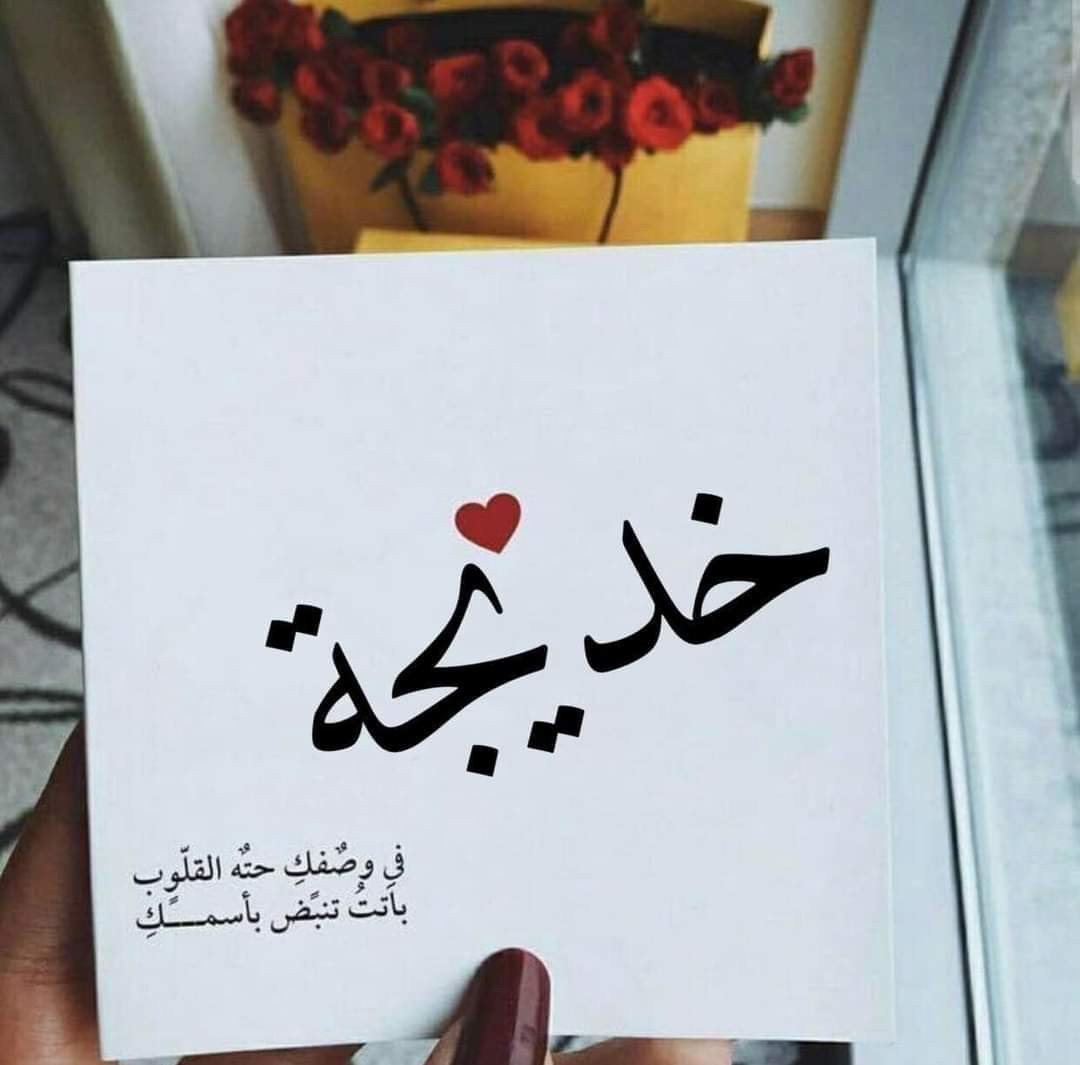 خديجة
في وصٌفكِ حتٌه القلّوب
باَتتُ تنبًض بأسمـــًكِ